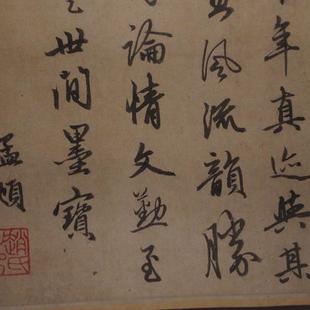 年真迹與其
風流韻勝
論情文勤至
世間墨寶
孟頫
趙氏